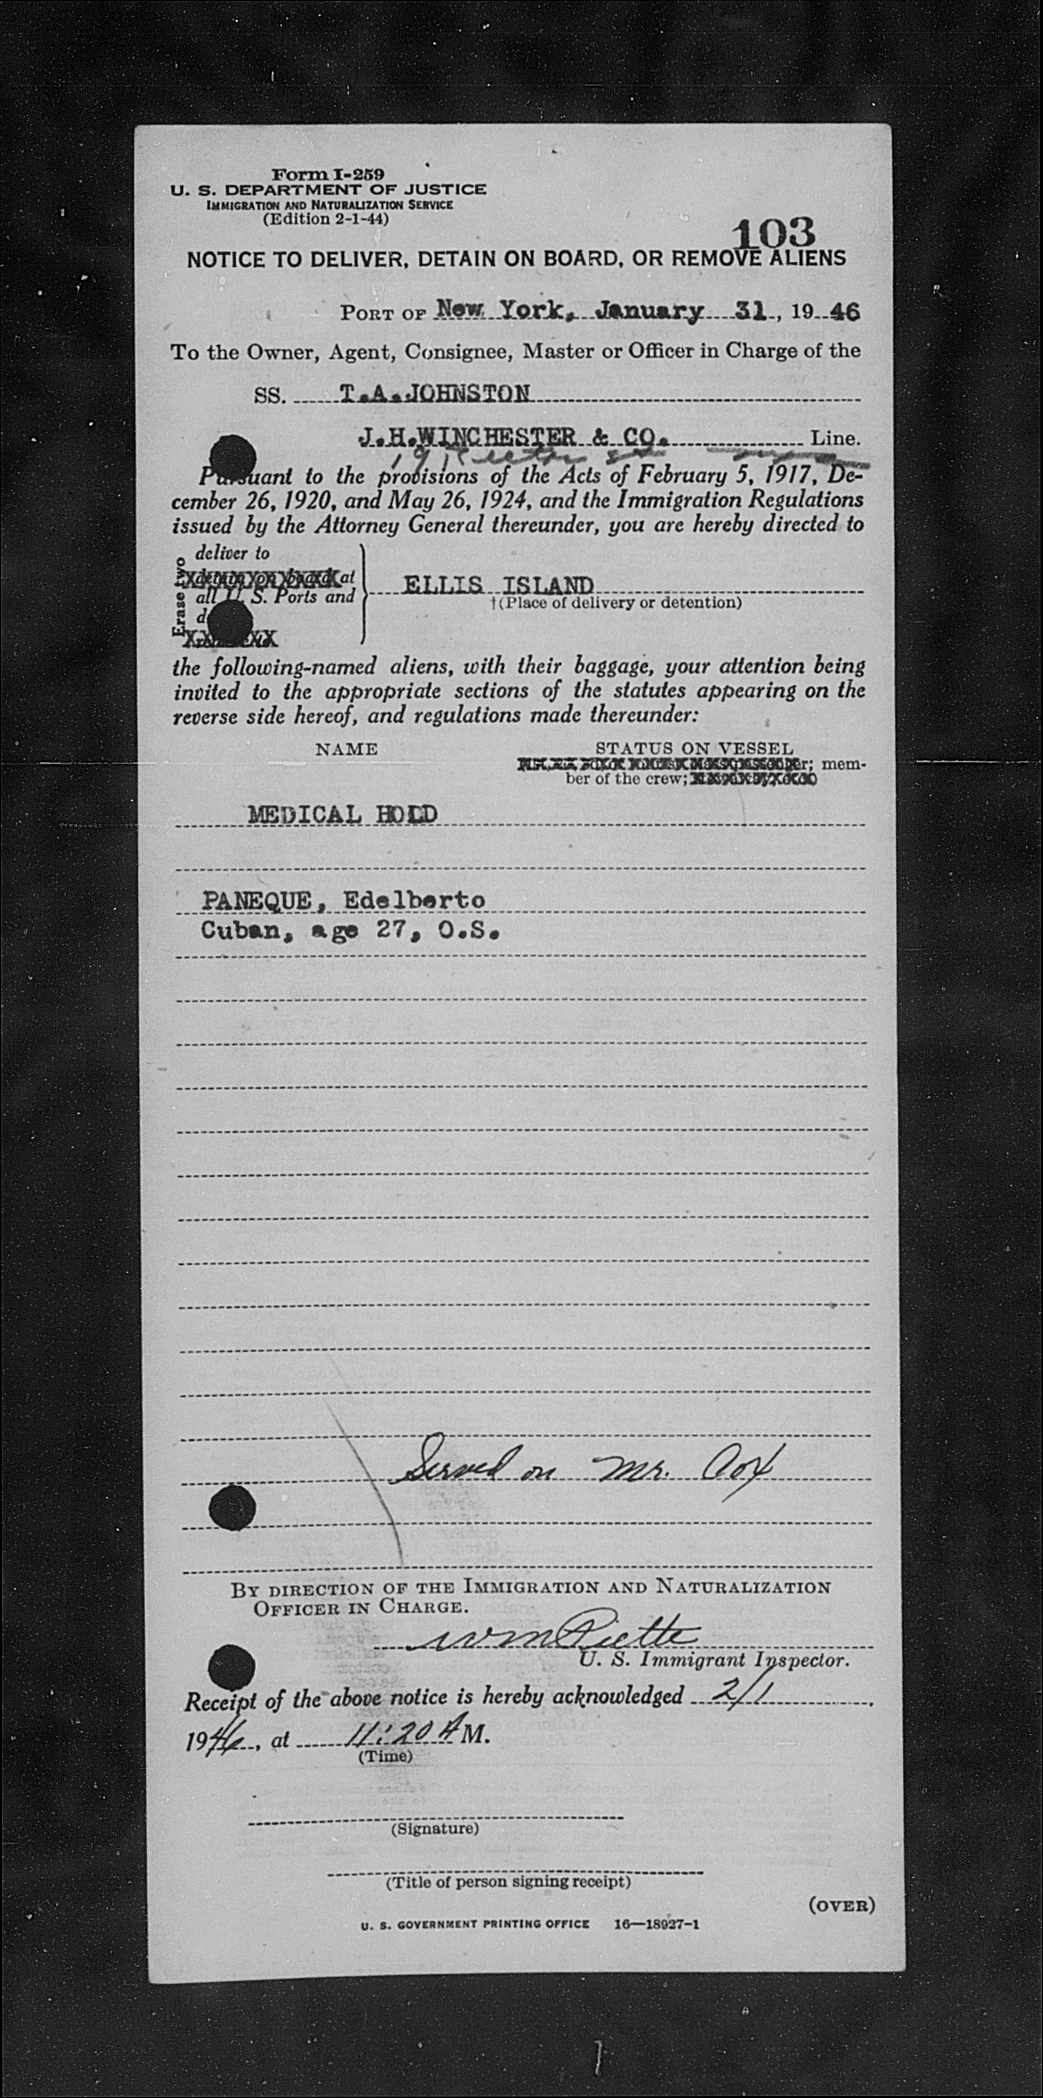 Form I-259
U. S. DEPARTMENT OF JUSTICE
IMMIGRATION AND NATURALIZATION SERVICE
(Edition 2-1-44)
103
NOTICE TO DELIVER, DETAIN ON BOARD, OR REMOVE ALIENS
PORT OF New York, January 31, 1946
To the Owner, Agent, Consignee, Master or Officer in Charge of the
SS. T.A.JOHNSTON
J.H.WINCHESTER & CO. Line.
19 Rector St
Pursuant to the provisions of the Acts of February 5, 1917, De-
cember 26, 1920, and May 26, 1924, and the Immigration Regulations
issued by the Attorney General thereunder, you are hereby directed to
Erase two
deliver to
detain on board at
all U. S. Ports and
ELLIS ISLAND
†(Place of delivery or detention)
the following-named aliens, with their baggage, your attention being
invited to the appropriate sections of the statutes appearing on the
reverse side hereof, and regulations made thereunder:
NAME STATUS ON VESSEL
mem-
ber of the crew;
MEDICAL HOLD
PANEQUE, Edelberto
Cuban, age 27, O.S.
Served on Mr. Cox
BY DIRECTION OF THE IMMIGRATION AND NATURALIZATION
OFFICER IN CHARGE.
Wm Piette
U. S. Immigrant Inspector.
Receipt of the above notice is hereby acknowledged 2/1,
1946, at 11:20 A M.
(Time)
(Signature)
(Title of person signing receipt)
(OVER)
U. S. GOVERNMENT PRINTING OFFICE 16—18927-1